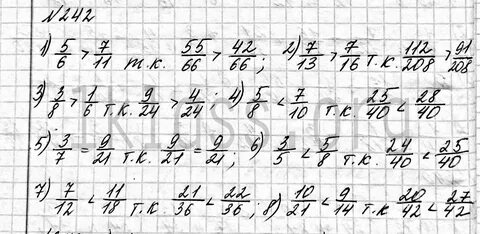 N242
1) 5/6 > 7/11 т.к. 55/66 > 42/66; 2) 7/13 > 7/16 т.к. 112/208 > 91/208
3) 3/8 > 1/6 т.к. 9/24 > 4/24 4) 5/8 < 7/10 т.к. 25/40 < 28/40
5) 3/7 = 9/21 т.к. 9/21 = 9/21; 6) 3/5 < 5/8 т.к. 24/40 < 25/40
7) 7/12 < 11/18 т.к. 21/36 < 22/36; 8) 10/21 < 9/14 т.к 20/42 < 27/42